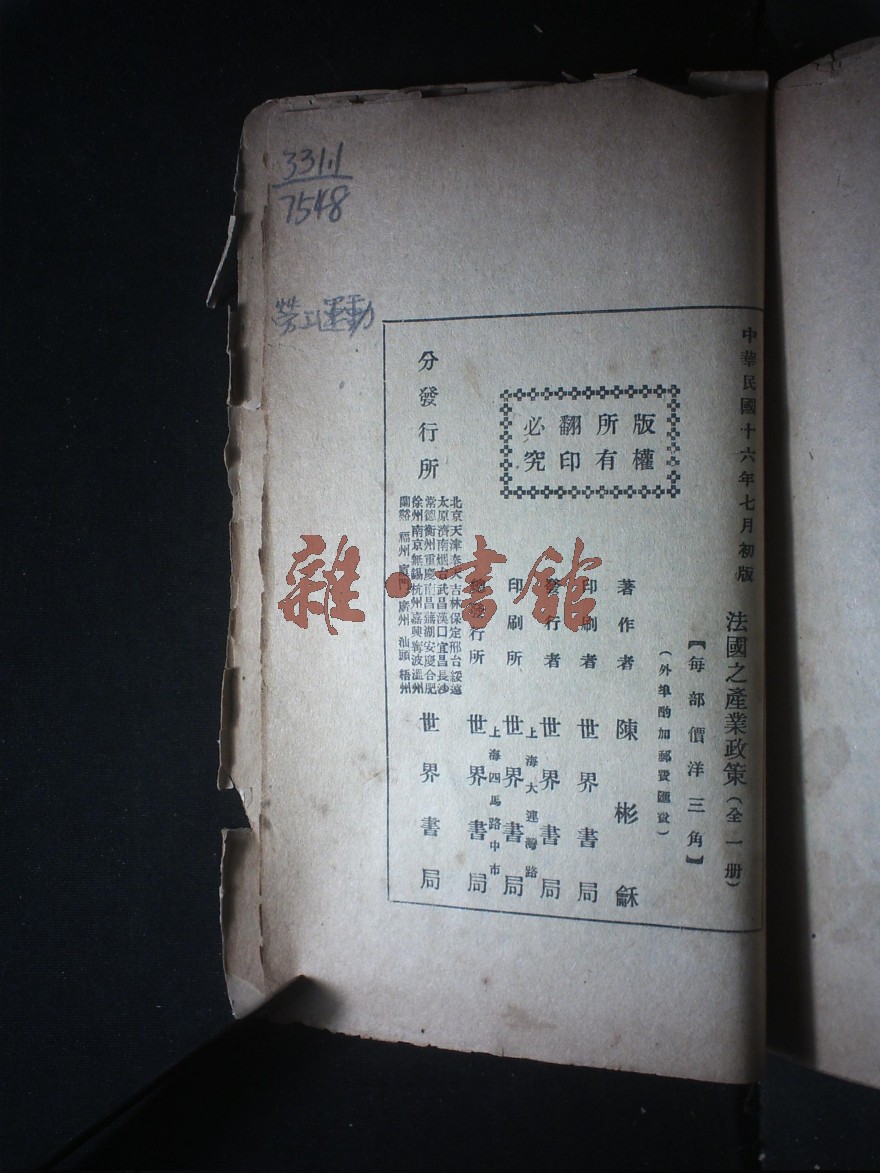 331.1
7548
勞工運動
中華民國十六年七月初版
法國之產業政策(全一册)
【每部價洋三角】
(外埠酌加郵費匯費)
版權
所有
翻印
必究
著作者 陳彬龢
印刷者 世界書局
發行者 世界書局
上海大連灣路
印刷所 世界書局
上海四馬路中市
總發行所 世界書局
分發行所
北京天津奉天吉林保定邢台綏遠
太原濟南烟台武昌漢口宜昌長沙
常德衡州重慶南昌蕪湖安慶合肥
徐州南京無錫杭州嘉興寧波溫州
蘭谿福州廈門廣州汕頭梧州
世界書局
雜·書館